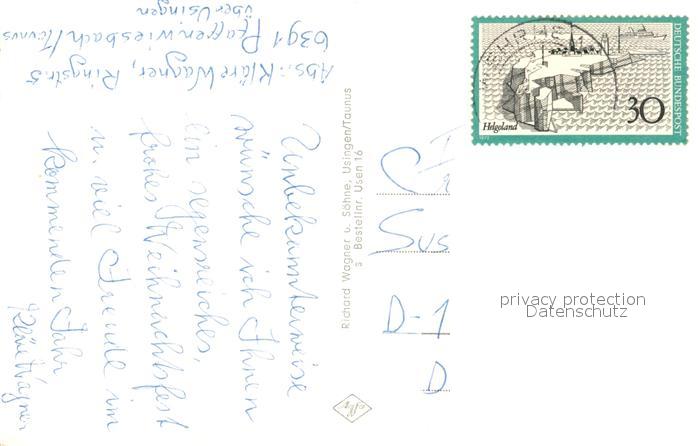 Abs.: Kläre Wagner, Ringstr. 5
6391 Pfaffenwiesbach/Taunus
über Usingen
Unbekannterweise
wünsche ich Ihnen
ein segensreiches,
frohes Weihnachtsfest
u. viel Freude im
kommenden Jahr
Kläre Wagner
Richard Wagner u. Söhne, Usingen/Taunus
s Bestellnr. Usen 16
DEUTSCHE BUNDESPOST
Helgoland
30
1972
Sus
D-1
D
privacy protection
Datenschutz